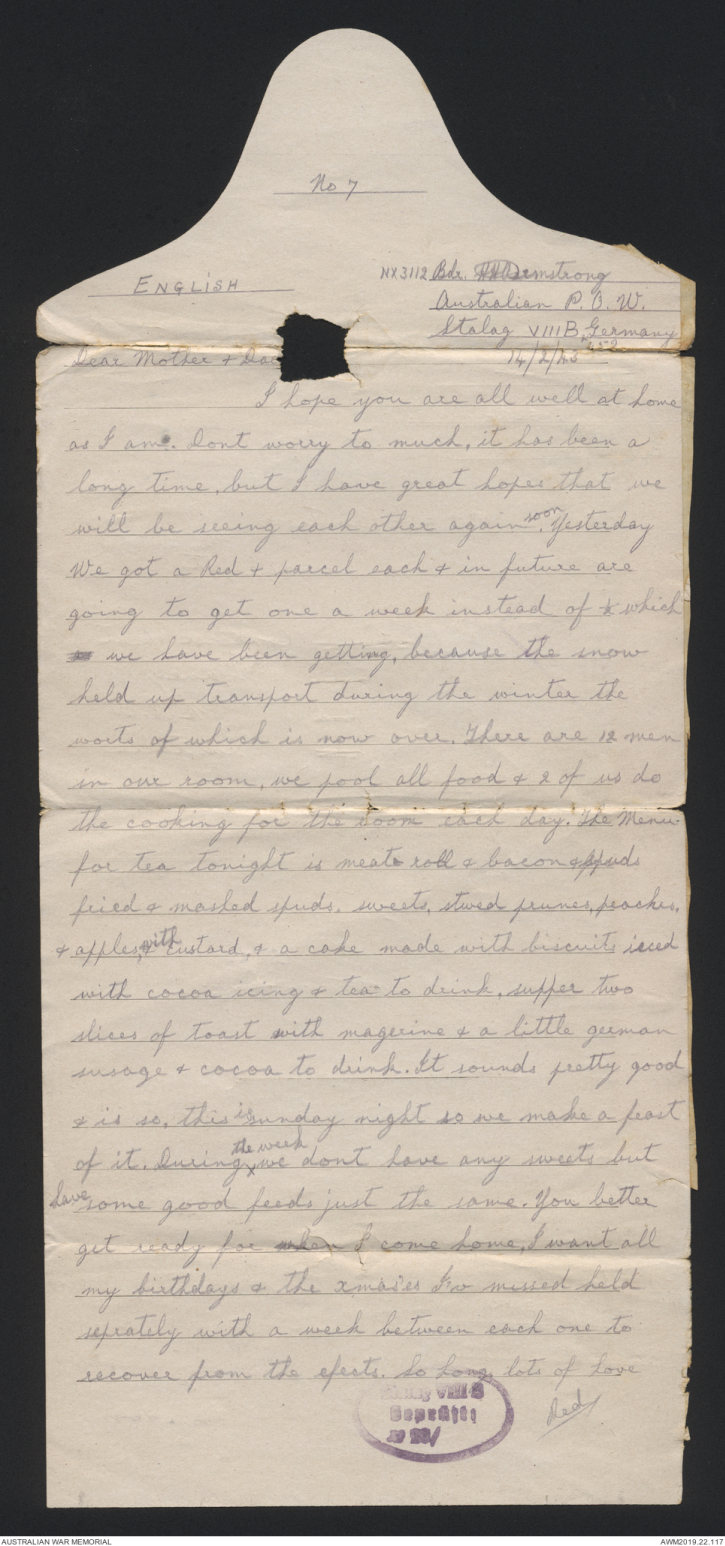 No 7
ENGLISH
NX3112 Bdr. Armstrong
Australian P. O. W.
Stalag VIIIB, Germany
14/2/43
Dear Mother + Da
I hope you are all well at home
as I am. Dont worry to much, it has been a
long time, but I have great hopes that we
will be seeing each other again soon. Yesterday
We got a Red + parcel each + in future are
going to get one a week instead of ½ which
we have been getting, because the snow
held up transport during the winter the
worts of which is now over. There are 12 men
in our room, we pool all food + 2 of us do
the cooking for the room each day. The Menu
for tea tonight is meat roll + bacon + spuds
fried + mashed spuds. sweets, stwed prunes, peaches,
+ apples, with custard, + a cake made with biscuits iced
with cocoa icing + tea to drink, supper two
slices of toast with magerine + a little german
susage + cocoa to drink. It sounds pretty good
+ is so, this is sunday night so we make a feast
of it. During the week we dont have any sweets but
have some good feeds just the same. You better
get ready for when I come home, I want all
my birthdays + the xmas'es I'v missed held
seprately with a week between each one to
recover from the efects. So Long, lots of love
Red
Stalag VIII B
Geprüft
AUSTRALIAN WAR MEMORIAL
AWM2019.22.117